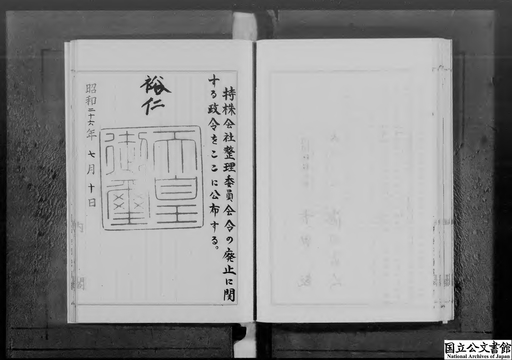 持株会社整理委員会令の廃止に関
する政令をここに公布する。
裕仁
天皇
御璽
昭和二十六年七月十日
国立公文書館
National Archives of Japan